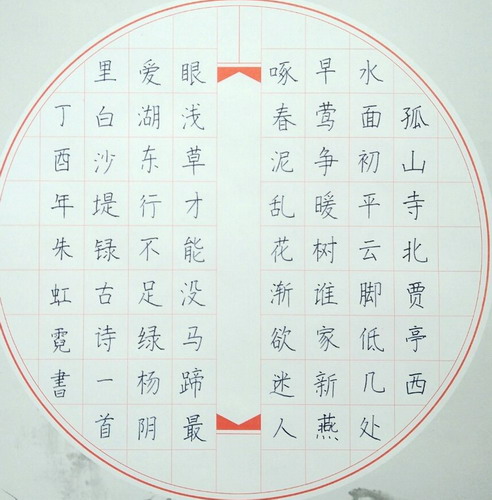 孤山寺北贾亭西
水面初平云脚低几处
早莺争暖树谁家新燕
啄春泥乱花渐欲迷人
眼浅草才能没马蹄最
爱湖东行不足绿杨阴
里白沙堤録古诗一首
丁酉年朱虹霓書